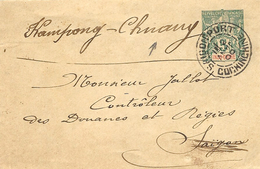 Kampong-Chnang
SAIGON-PORT
COCHINCHINE
Monsieur Jallot
Contrôleur
des Douanes et Régies
Saïgon